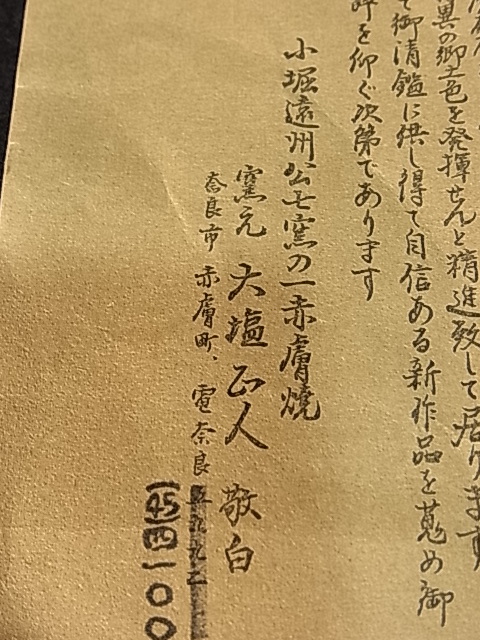 異の郷土色を発揮せんと精進致して居ります
て御清鑑に供し得て自信ある新作品を蒐め御
評を仰ぐ次第であります
小堀遠州公七窯の一赤膚燒
窯元 大塩正人 敬白
奈良市 赤膚町、電奈良 五九九二
(45)四一〇〇